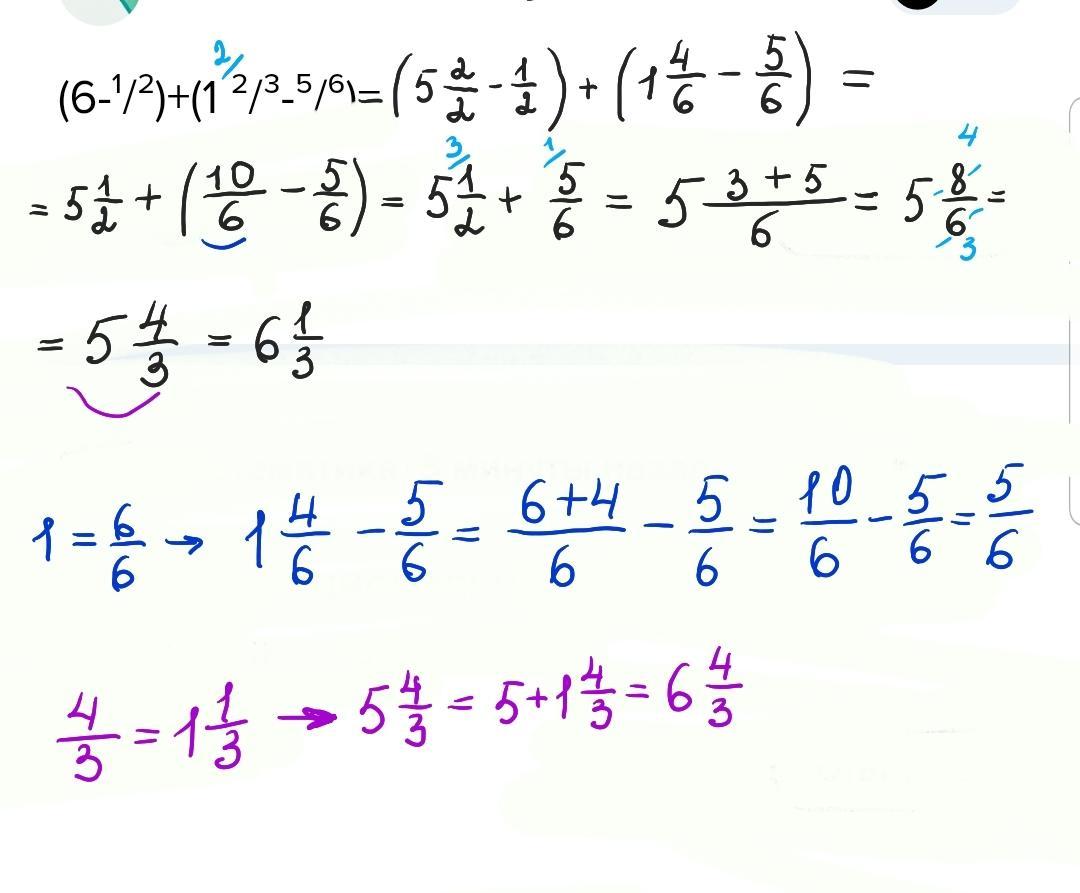 (6-1/2)+(1 2/3-5/6)= (5 2/2 - 1/2) + (1 4/6 - 5/6) =
= 5 1/2 + (10/6 - 5/6) = 5 1/2 + 5/6 = 5 3+5/6 = 5 8/6 =
= 5 4/3 = 6 1/3
1 = 6/6 → 1 4/6 - 5/6 = 6+4/6 - 5/6 = 10/6 - 5/6 = 5/6
4/3 = 1 1/3 → 5 4/3 = 5+1 4/3 = 6 4/3